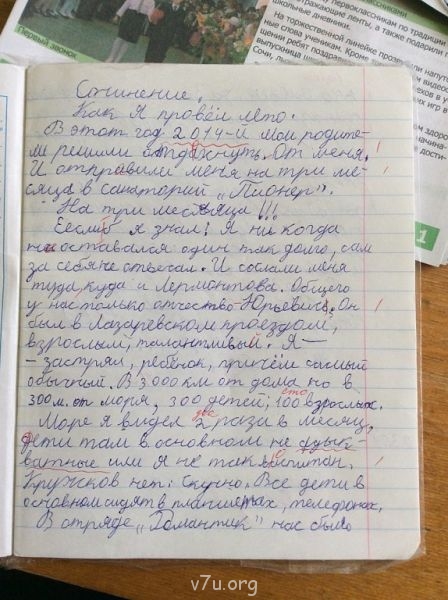 первоклассникам по традиции
отражающие ленты, а также подарили п
школьные дневники.
На торжественной линейке прозвучали напут
ные слова ученикам. Кроме
ребят поздрав
выпускница
Сочи,
Первый звонок
1
Сочинение.
Как я провёл лето.
В этот год 2014-й мои родите-
ли решили отдохнуть. От меня.
И отправили меня на три ме-
сяца в санаторий „Пионер".
На три месяца!!!
Еслиб я знал! Я ни когда
не оставался один так долго, сам
за себя не отвечал. И сослали меня
туда, куда и Лермонтова. Общего
у нас только отчество - Юрьевич. Он
был в Лазаревском проездом,
взрослый, талантливый. Я -
- застрял, ребёнок, причём самый
обычный. В 3000 км от дома но в
сто
300 м. от моря, 300 детей, 100 взрослых.
два
Море я видел 2 раза в месяц,
дети там в основном не адык-
ватные или я не так воспитан.
Кружков нет. Скучно. Все дети в
основном сидят в планшетах, телефонах.
В отряде „Романтик" нас было
v7u.org